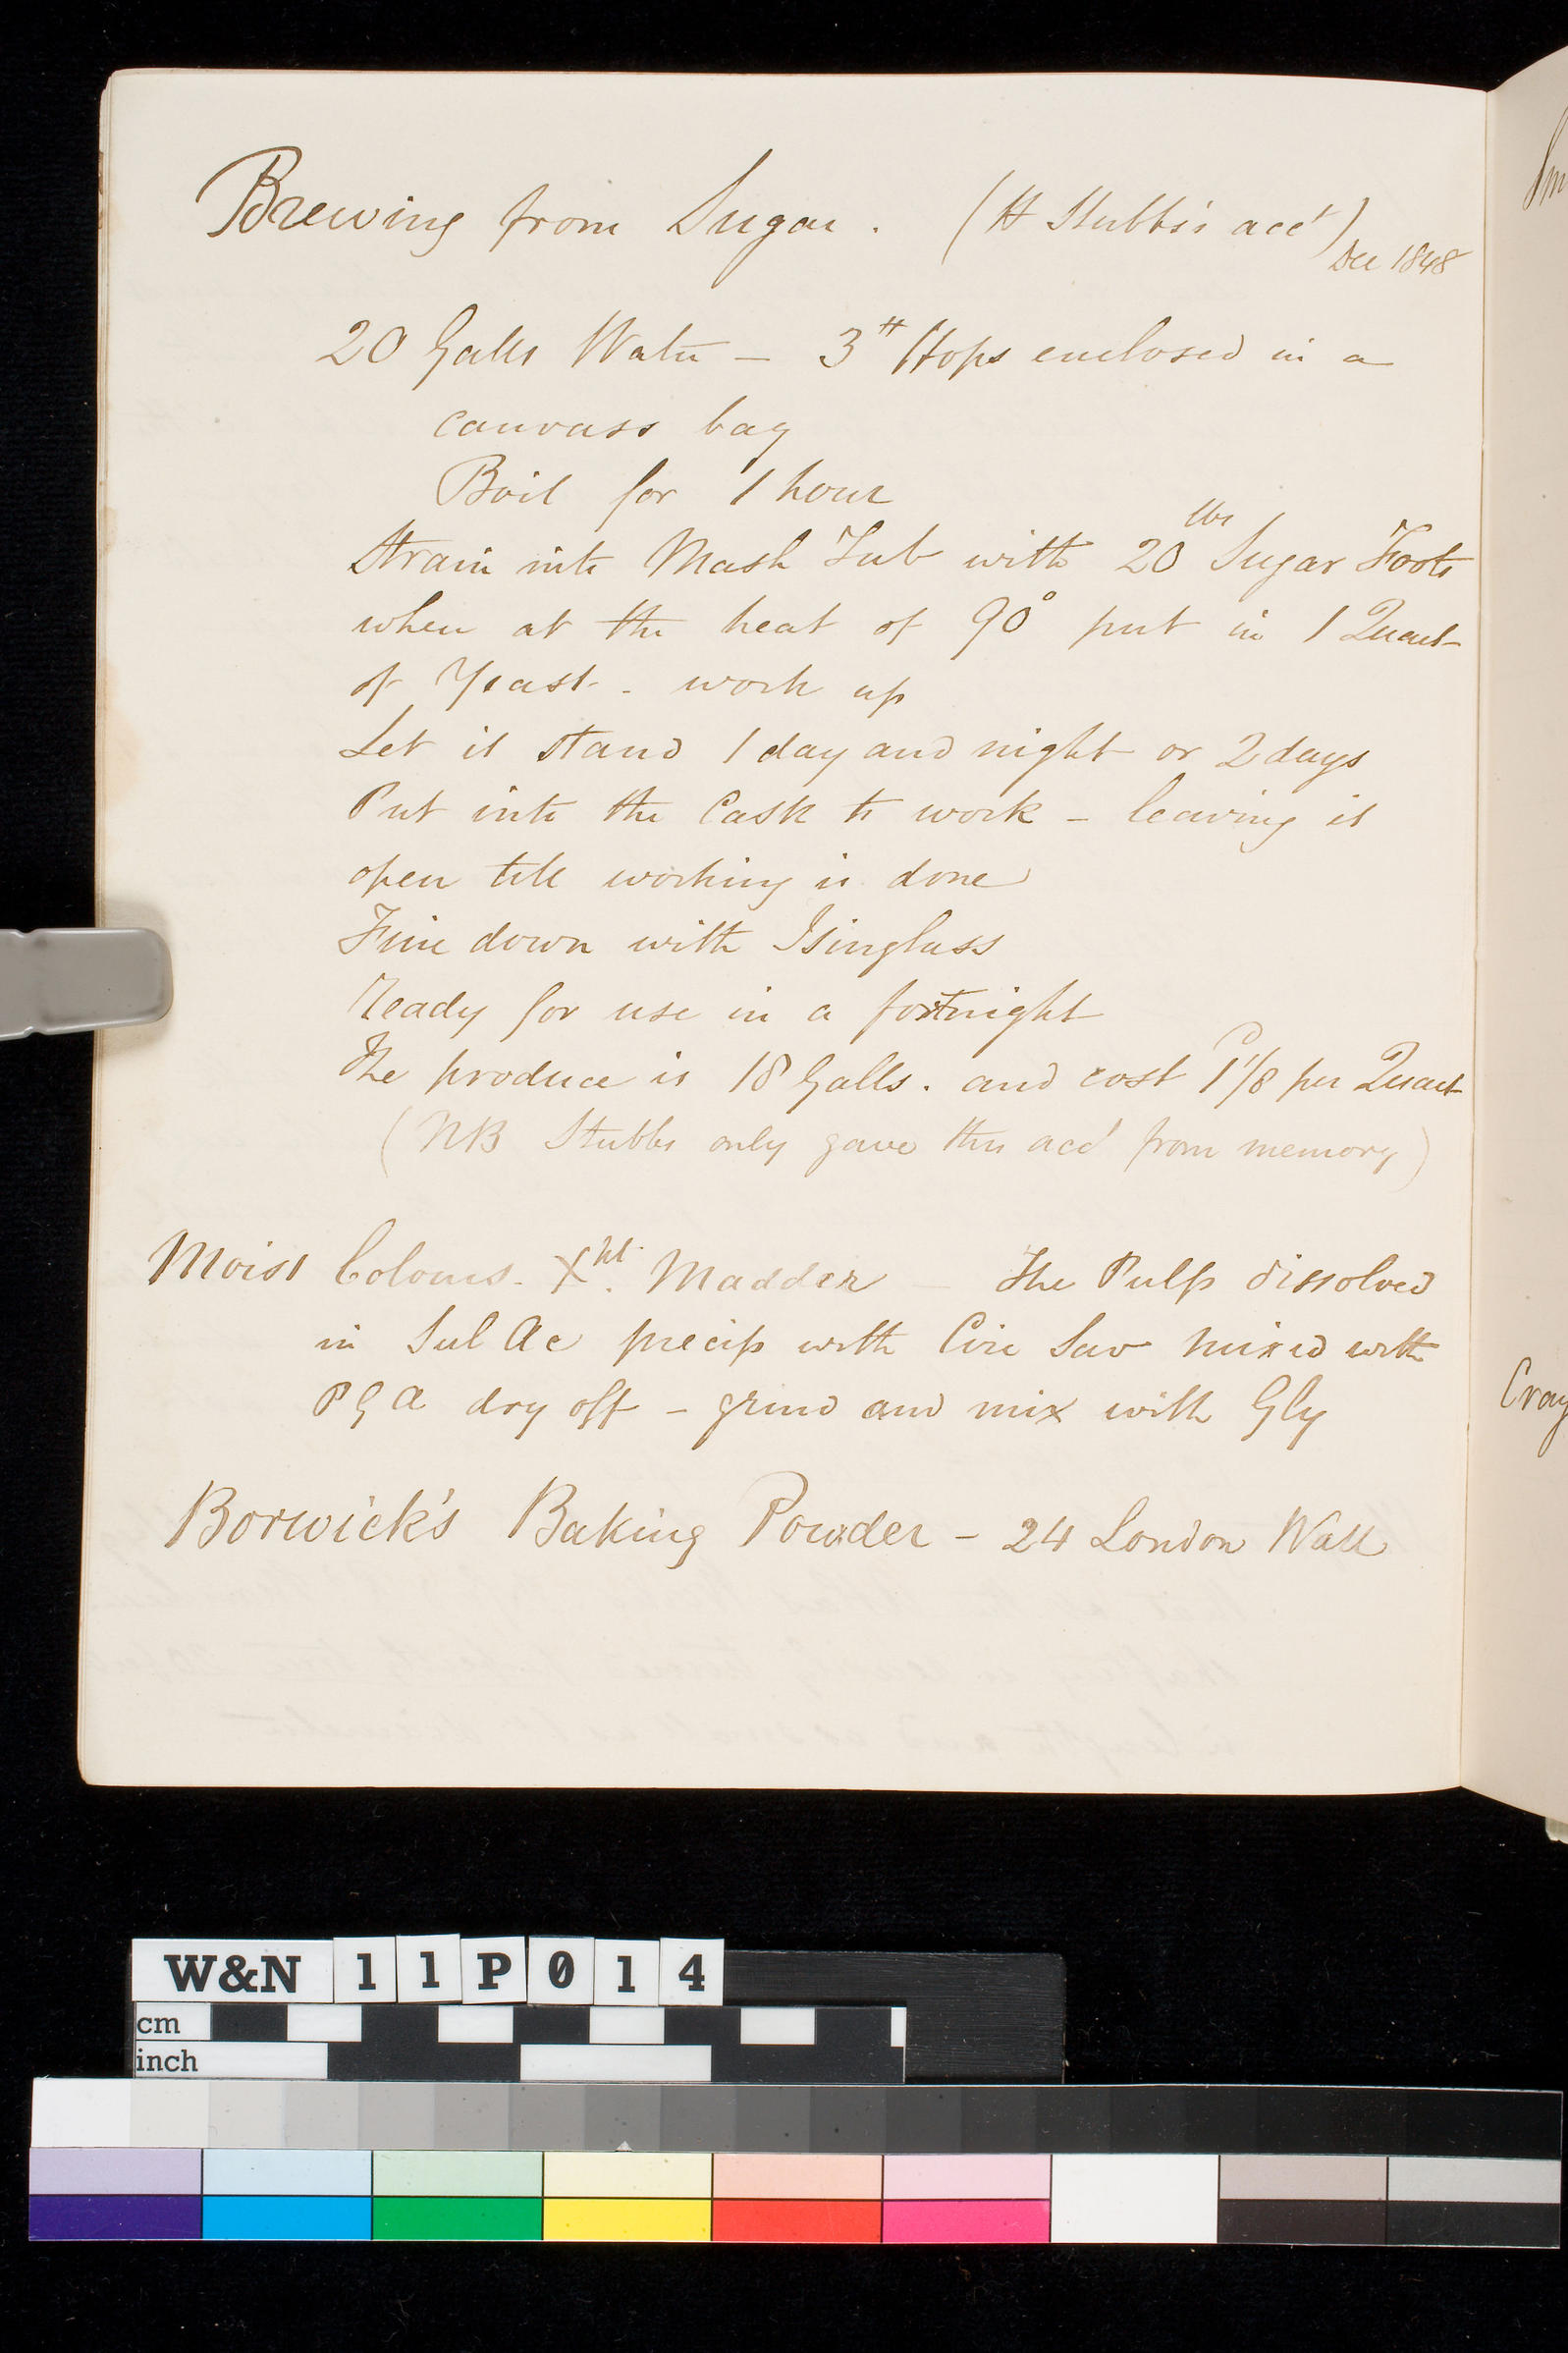 Brewing from Sugar. (H Stubbs's acct)
Dec 1848
20 Galls Water — 3 ℔ Hops enclosed in a
canvass bag
Boil for 1 hour
Strain into Mash Tub with 20 lbs Sugar Foots
when at the heat of 90° put in 1 Quart
of Yeast - work up
Let it stand 1 day and night or 2 days
Put into the Cask to work – leaving it
open till working is done
Fine down with Isinglass
Ready for use in a fortnight
The produce is 18 Galls. and cost 1 1/8 per Quart
(NB Stubbs only gave this acct from memory)
Moist Colours. Madder — The Pulp dissolved
in Sul Ac precip with mixed with
P G A dry off – grind and mix with Gly
Borwick's Baking Powder – 24 London Wall
Cray
W&N 11P014
cm
inch